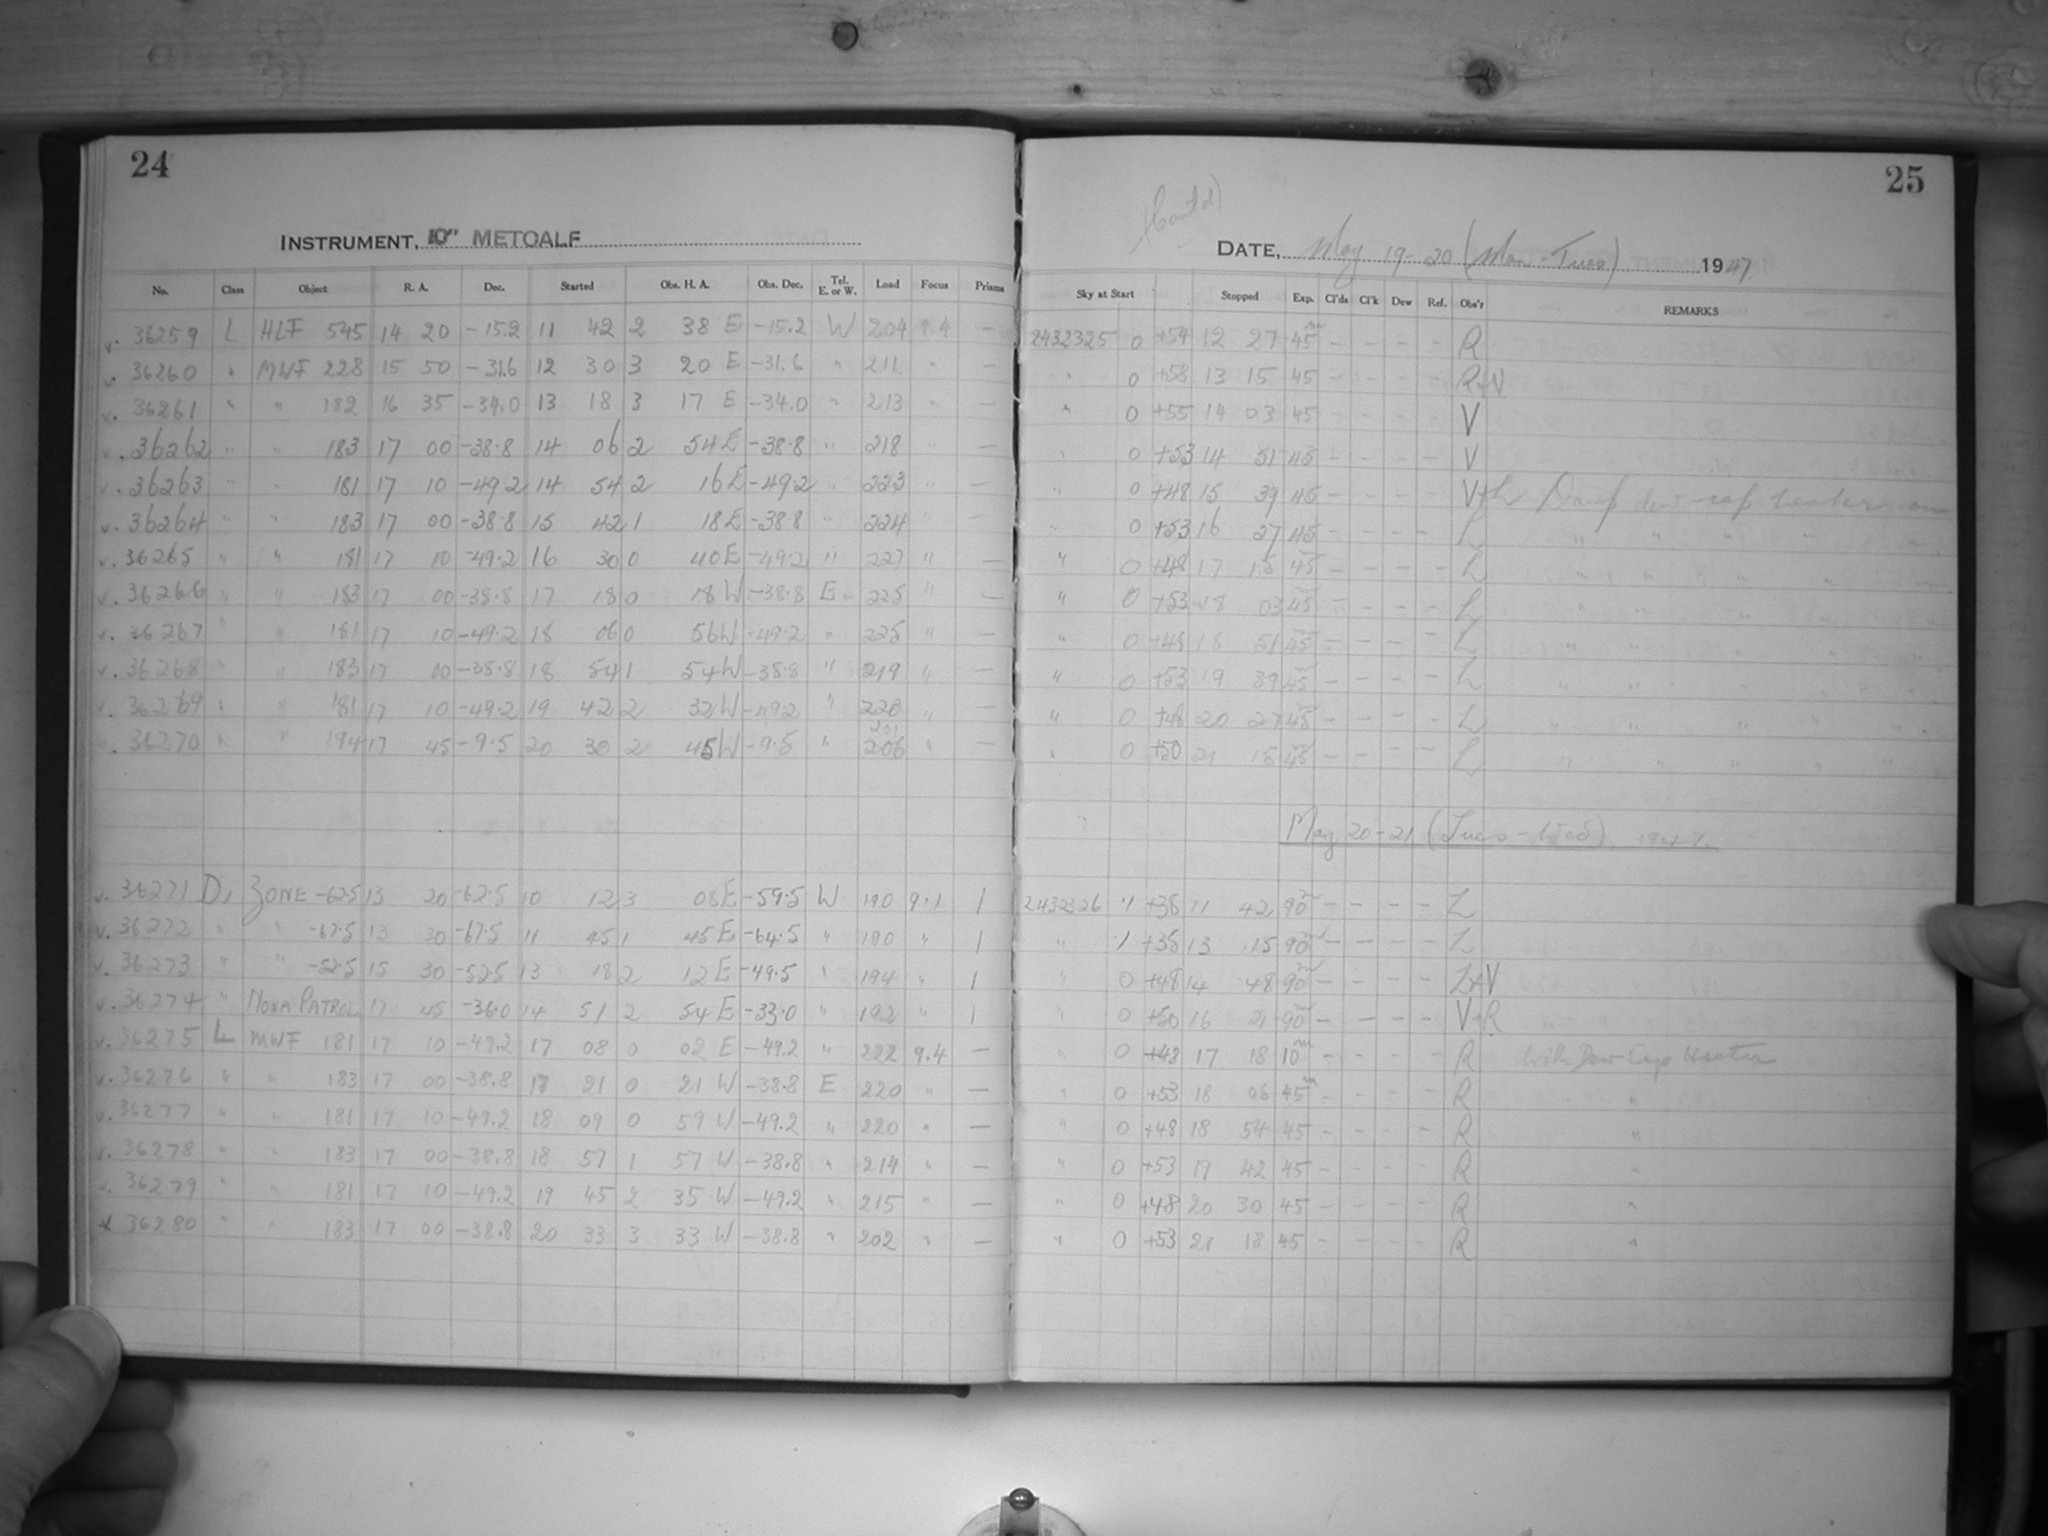 24
INSTRUMENT, 10" METCALF
No. Class Object R. A. Dec. Started Obs. H. A. Obs. Dec. Tel. E. or W. Load Focus Prisms
v. 36259 L HLF 545 14 20 -15.2 11 42 2 38 E -15.2 W 204 9.4 -
v. 36260 " MWF 228 15 50 -31.6 12 30 3 20 E -31.6 " 211 " -
v. 36261 " " 182 16 35 -34.0 13 18 3 17 E -34.0 " 213 " -
v. 36262 " " 183 17 00 -38.8 14 06 2 54 E -38.8 " 218 " -
v. 36263 " " 181 17 10 -49.2 14 54 2 16 E -49.2 " 223 " -
v. 36264 " " 183 17 00 -38.8 15 42 1 18 E -38.8 " 224 " -
v. 36265 " " 181 17 10 -49.2 16 30 0 40 E -49.2 " 227 " -
v. 36266 " " 183 17 00 -38.8 17 18 0 18 W -38.8 E 225 " -
v. 36267 " " 181 17 10 -49.2 18 06 0 56 W -49.2 " 225 " -
v. 36268 " " 183 17 00 -38.8 18 54 1 54 W -38.8 " 219 " -
v. 36269 " " 181 17 10 -49.2 19 42 2 32 W -49.2 " 220 " -
v. 36270 " " 194 17 45 -9.5 20 30 2 45 W -9.5 " 206 " -
v. 36271 D, ZONE -62.5 13 20 -62.5 10 12 3 08 E -59.5 W 190 9.1 1
v. 36272 " " -67.5 13 30 -67.5 11 45 1 45 E -64.5 " 190 " 1
v. 36273 " " -52.5 15 30 -52.5 13 18 2 12 E -49.5 " 194 " 1
v. 36274 " NOVA PATROL 17 45 -36.0 14 51 2 54 E -33.0 " 192 " 1
v. 36275 L MWF 181 17 10 -49.2 17 08 0 02 E -49.2 " 222 9.4 -
v. 36276 " " 183 17 00 -38.8 17 21 0 21 W -38.8 E 220 " -
v. 36277 " " 181 17 10 -49.2 18 09 0 59 W -49.2 " 220 " -
v. 36278 " " 183 17 00 -38.8 18 57 1 57 W -38.8 " 214 " -
v. 36279 " " 181 17 10 -49.2 19 45 2 35 W -49.2 " 215 " -
36280 " " 183 17 00 -38.8 20 33 3 33 W -38.8 " 202 " -
25
(Cont'd)
DATE, May 19-20 (Mon-Tues) 1947
Sky at Start Stopped Exp. Cl'ds Cl'k Dew Ref. Obs'r REMARKS
2432325 0 +54 12 27 45m - - - - R
" 0 +58 13 15 45 - - - - R+V
" 0 +55 14 03 45 - - - - V
" 0 +53 14 51 45 - - - - V
" 0 +48 15 39 45 - - - - V+L Damp dew cap heater on
" 0 +53 16 27 45 - - - - L " " " "
" 0 +48 17 15 45 - - - - L " " " "
" 0 +53 18 03 45 - - - - L " " " "
" 0 +48 18 51 45 - - - - L " " " "
" 0 +53 19 39 45 - - - - L " " " "
" 0 +48 20 27 45 - - - - L " " " "
" 0 +50 21 15 45 - - - - L " " " "
May 20-21 (Tues-Wed), 1947.
2432326 .1 +38 11 42 90m - - - - L
" .1 +38 13 15 90m - - - - L
" 0 +48 14 48 90m - - - - L+V
" 0 +50 16 21 90m - - - - V+R
" 0 +48 17 18 10m - - - - R With Dew Cap Heater
" 0 +53 18 06 45m - - - - R "
" 0 +48 18 54 45 - - - - R "
" 0 +53 19 42 45 - - - - R "
" 0 +48 20 30 45 - - - - R "
" 0 +53 21 18 45 - - - - R "